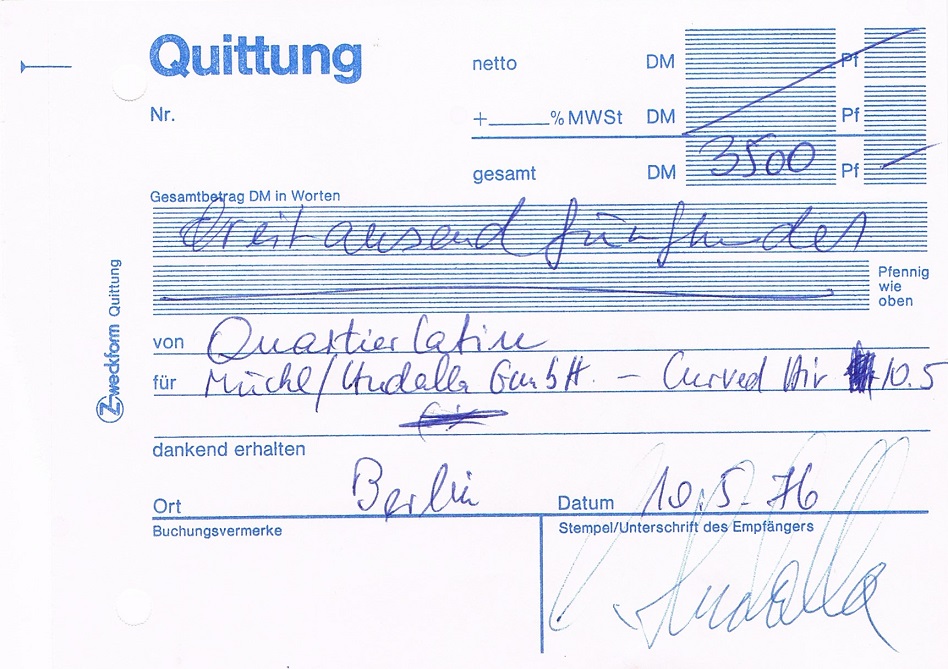 Quittung
netto DM Pf
Nr.
+ % MWSt DM Pf
gesamt DM 3500 Pf -
Gesamtbetrag DM in Worten
Dreitausend fünfhundert
Pfennig
wie
oben
von Quartier Latin
für Michl/Hudalla GmbH. - Curved Air 10.5
dankend erhalten
Ort Berlin Datum 10.5.76
Buchungsvermerke Stempel/Unterschrift des Empfängers
Hudalla
Zweckform Quittung